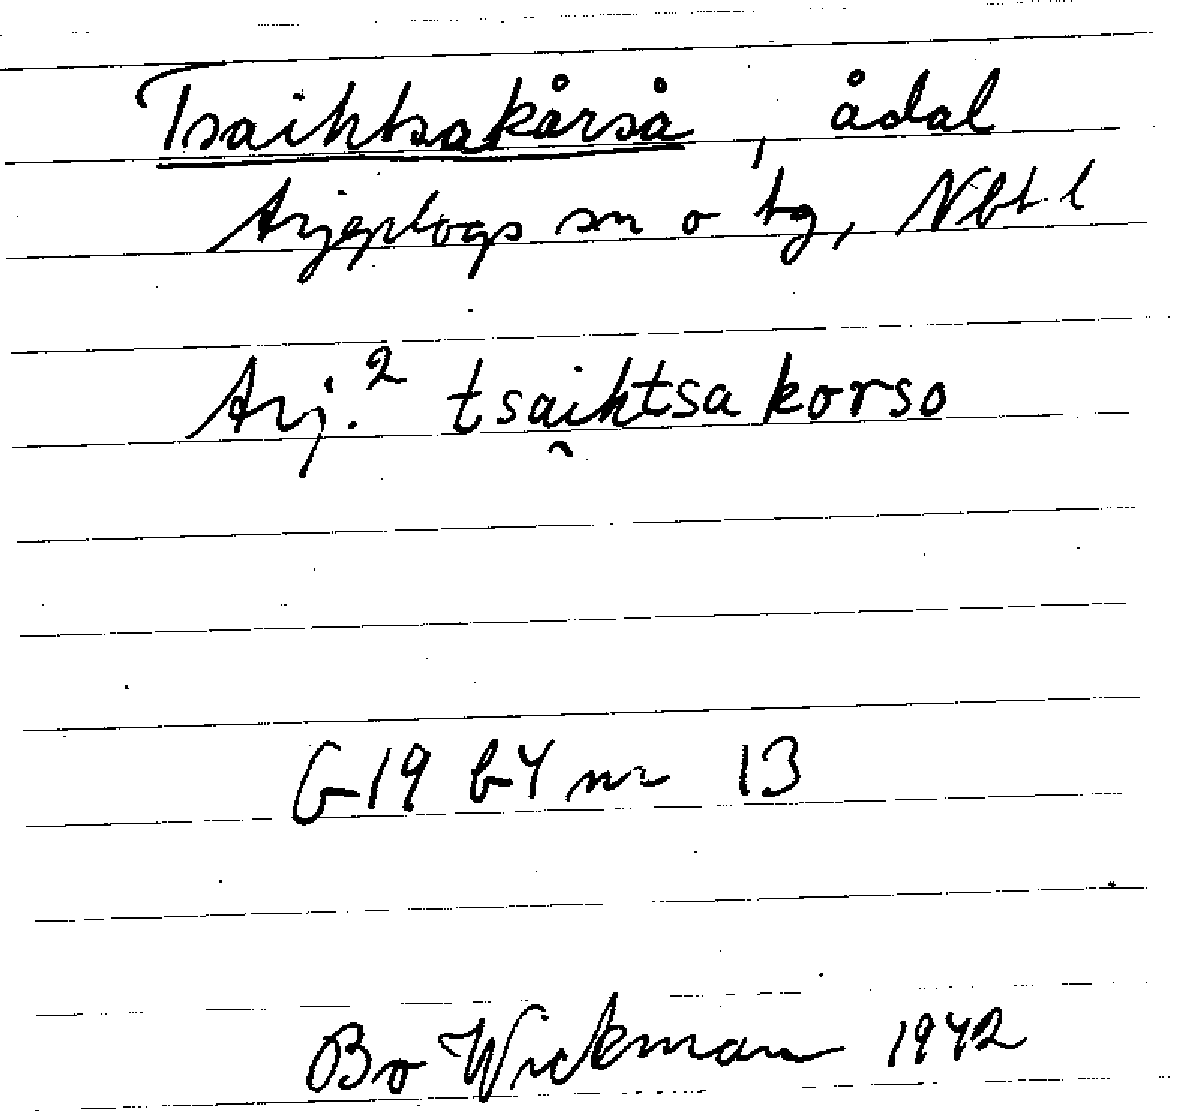 Tsaihtsakårså, ådal
Arjeplogs sn o tg, Nbt. l
Arj.² tsai̯htsa korso
G19 b4 nr 13
Bo Wickman 1942